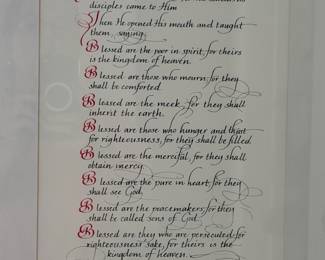 disciples came to Him
Then He opened His mouth and taught
them, saying,
Blessed are the poor in spirit, for theirs
is the kingdom of heaven.
Blessed are those who mourn, for they
shall be comforted.
Blessed are the meek, for they shall
inherit the earth.
Blessed are those who hunger and thirst
for righteousness, for they shall be filled.
Blessed are the merciful, for they shall
obtain mercy.
Blessed are the pure in heart, for they
shall see God.
Blessed are the peacemakers, for they
shall be called sons of God.
Blessed are they who are persecuted for
righteousness sake, for theirs is the
kingdom of heaven.